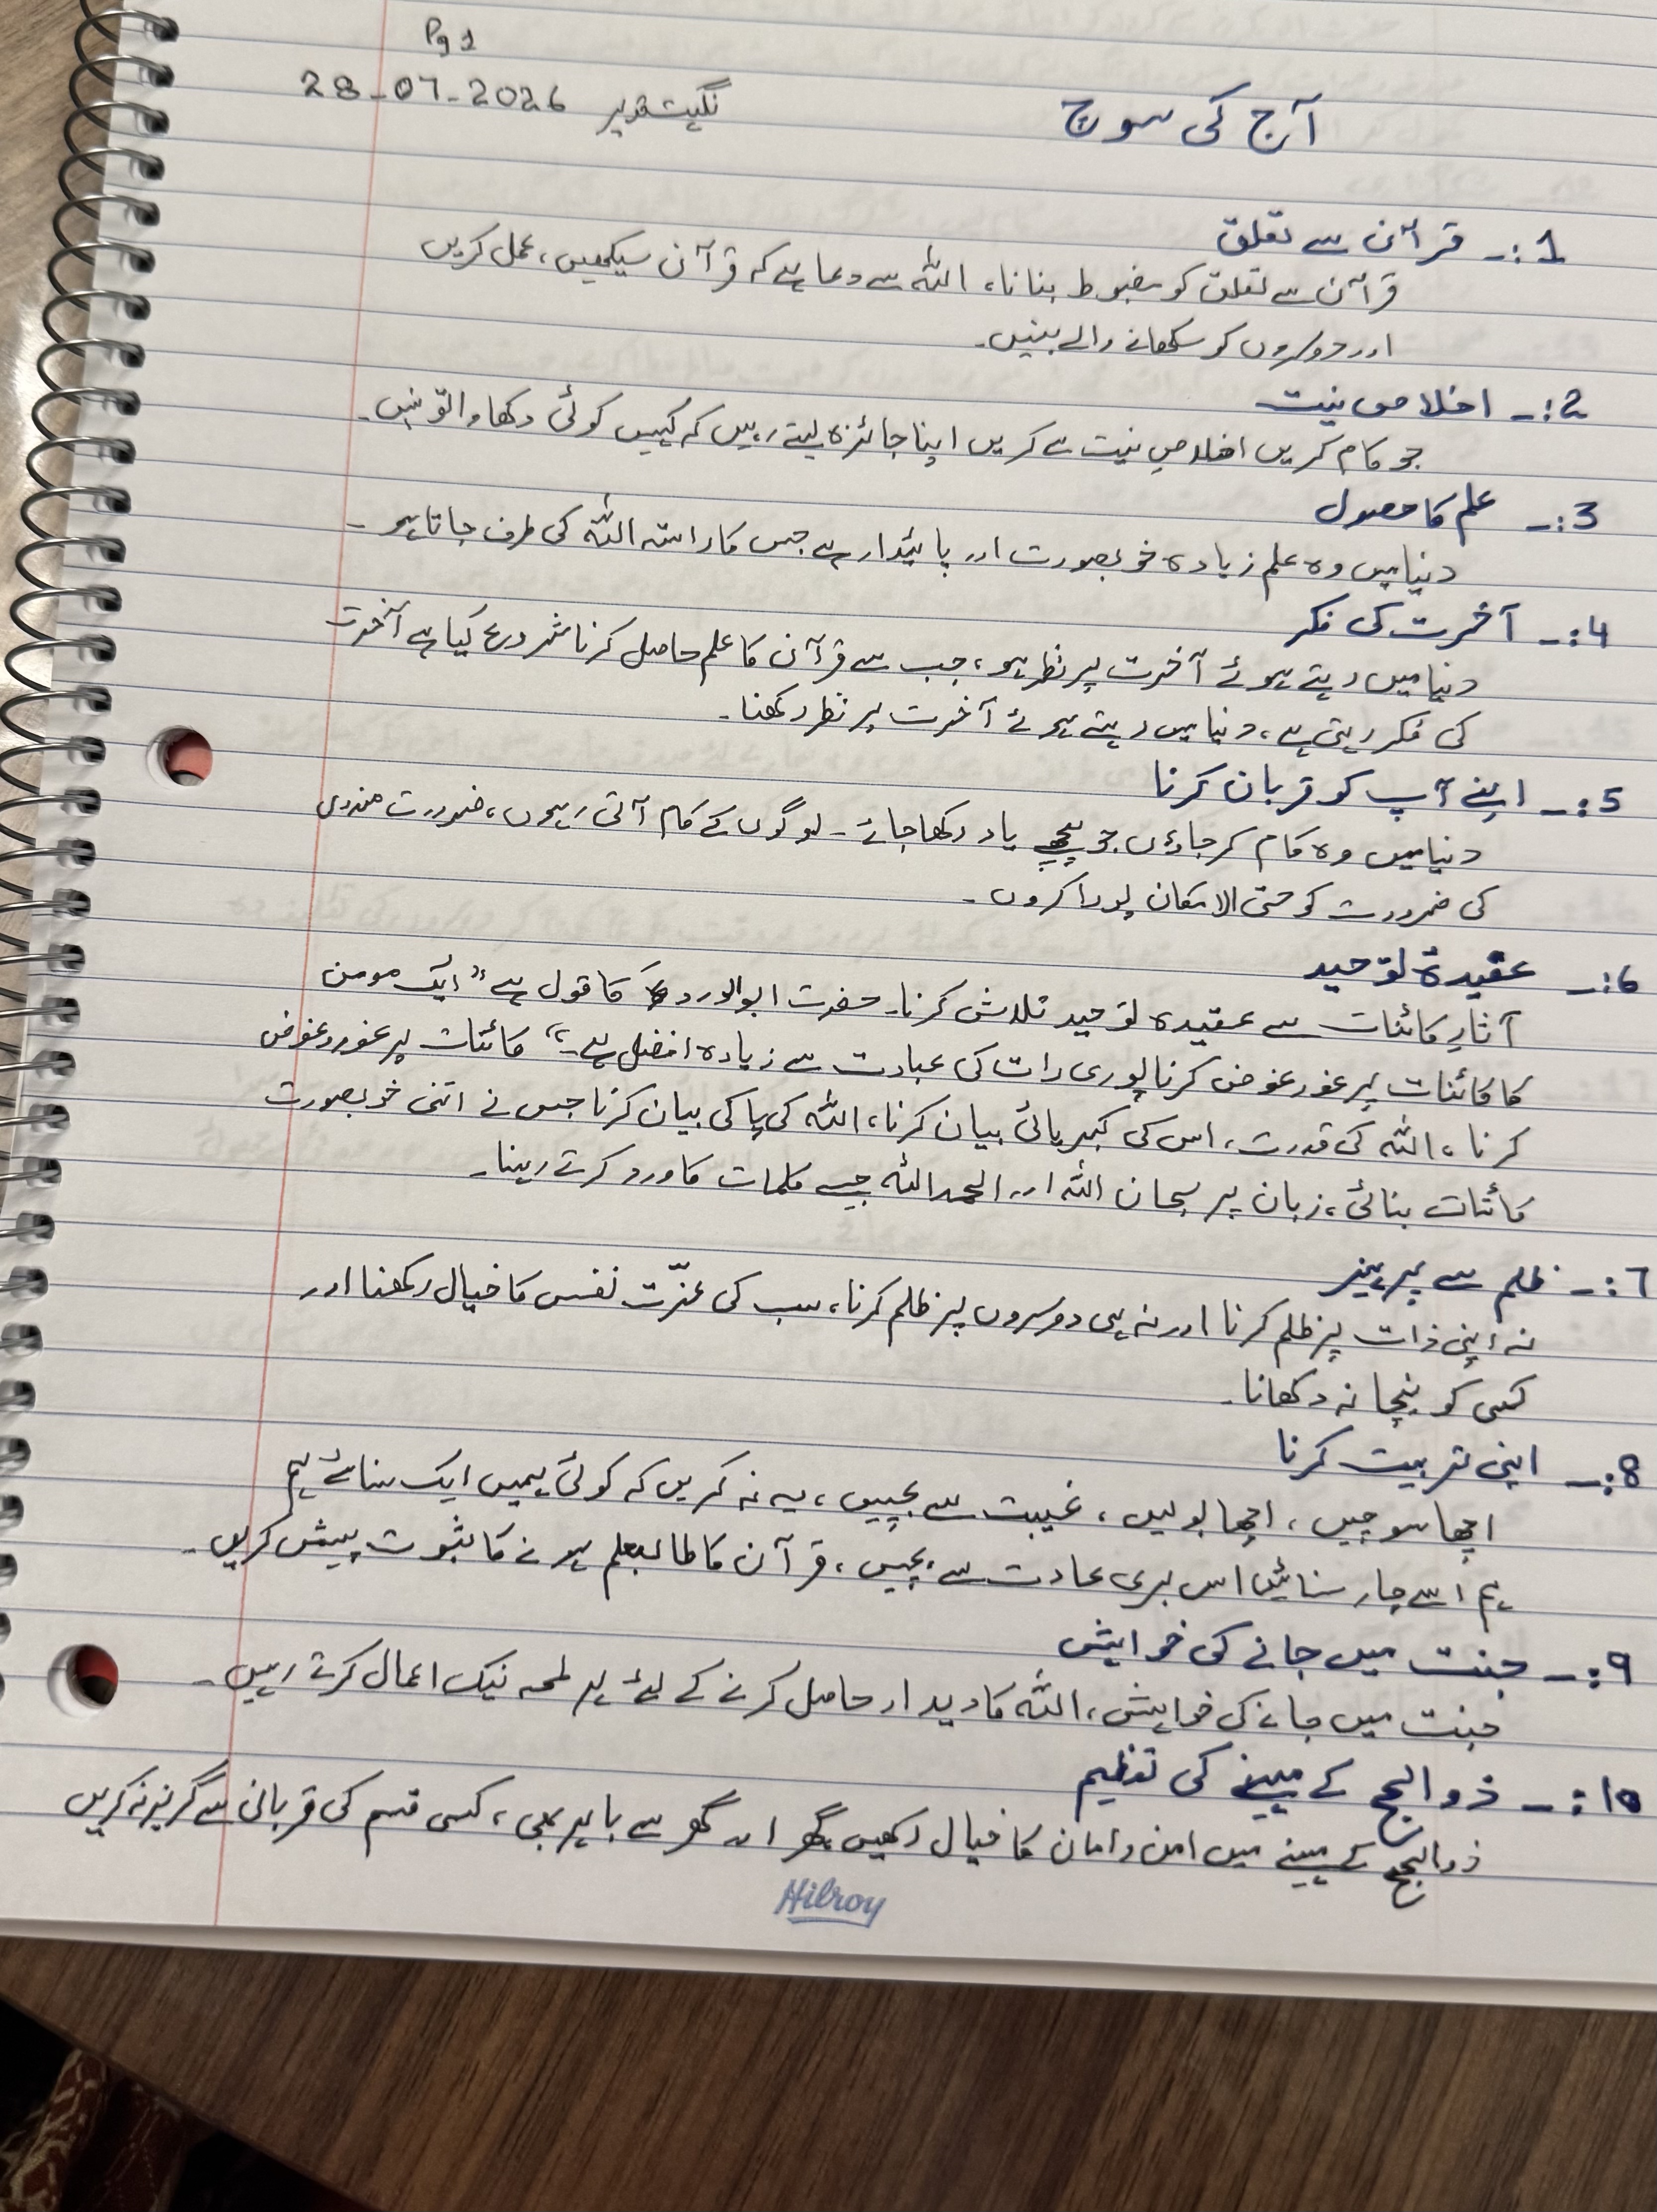 Pg 1
آج کی سوچ
نگہت قدیر 28-07-2026
1:- قرآن سے تعلق
قرآن سے تعلق کو مضبوط بنانا، اللہ سے دعا ہے کہ قرآن سیکھیں، عمل کریں
اور دوسروں کو سکھانے والے بنیں۔
2:- اخلاص نیت
جو کام کریں اخلاصِ نیت سے کریں اپنا جائزہ لیتے رہیں کہ کہیں کوئی دکھاوا تو نہیں۔
3:- علم کا حصول
دنیا میں وہ علم زیادہ خوبصورت اور پائیدار ہے جس کا راستہ اللہ کی طرف جاتا ہو۔
4:- آخرت کی فکر
دنیا میں رہتے ہوئے آخرت پر نظر ہو، جب سے قرآن کا علم حاصل کرنا شروع کیا ہے آخرت
کی فکر رہتی ہے، دنیا میں رہتے ہوئے آخرت پر نظر رکھنا۔
5:- اپنے آپ کو قربان کرنا
دنیا میں وہ کام کر جاؤں جو پیچھے یاد رکھا جائے۔ لوگوں کے کام آتی رہوں، ضرورت مندوں
کی ضرورت کو حتی الامکان پورا کروں۔
6:- عقیدۃ توحید
آثارِ کائنات سے عقیدہ توحید تلاش کرنا۔ حضرت ابوالدردہ کا قول ہے "ایک مومن
کا کائنات پر غوروغوض کرنا پوری رات کی عبادت سے زیادہ افضل ہے۔" کائنات پر غوروغوض
کرنا، اللہ کی قدرت، اس کی کبریائی بیان کرنا، اللہ کی پاکی بیان کرنا جس نے اتنی خوبصورت
کائنات بنائی، زبان پر سبحان اللہ اور الحمداللہ جیسے کلمات کا ورد کرتے رہنا۔
7:- ظلم سے پرہیز
نہ اپنی ذات پر ظلم کرنا اور نہ ہی دوسروں پر ظلم کرنا، سب کی عزّت نفس کا خیال رکھنا اور
کسی کو نیچا نہ دکھانا۔
8:- اپنی تربیت کرنا
اچھا سوچیں، اچھا بولیں، غیبت سے بچیں، یہ نہ کریں کہ کوئی ہمیں ایک سنائے ہم
ہم اسے چار سنائیں اس بری عادت سے بچیں، قرآن کا طالبعلم ہونے کا ثبوت پیش کریں۔
9:- جنت میں جانے کی خواہش
جنت میں جانے کی خواہش، اللہ کا دیدار حاصل کرنے کے لئے ہر لمحہ نیک اعمال کرتے رہیں۔
10:- ذوالحج کے مہینے کی تعظیم
ذوالحج کے مہینے میں امن و امان کا خیال رکھیں گھر اور گھر سے باہر بھی، کسی قسم کی قربانی سے گریز نہ کریں
Hilroy